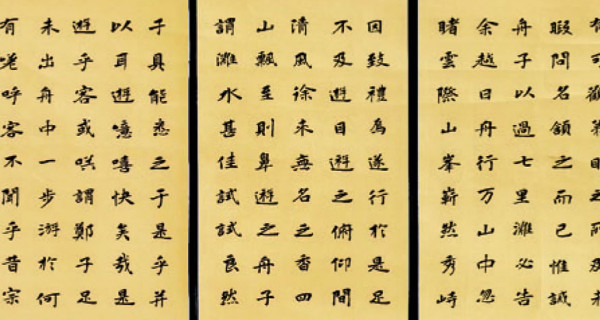 目之所及未
暇問名頷之而已惟誡
舟子以過七里灘必告
余越日舟行万山中忽
睹雲際山峯嶄然秀峙
因致禮焉遂行於是足
不及遊目遊之俯仰間
清風徐来無名之香四
山飄至則鼻遊之舟子
謂灘水甚佳試試良然
于具能悉之于是乎并
以耳遊噫嘻快矣哉是
遊乎客或咲謂鄭子足
未出舟中一步游於何
有嗟呼客不聞乎昔宗